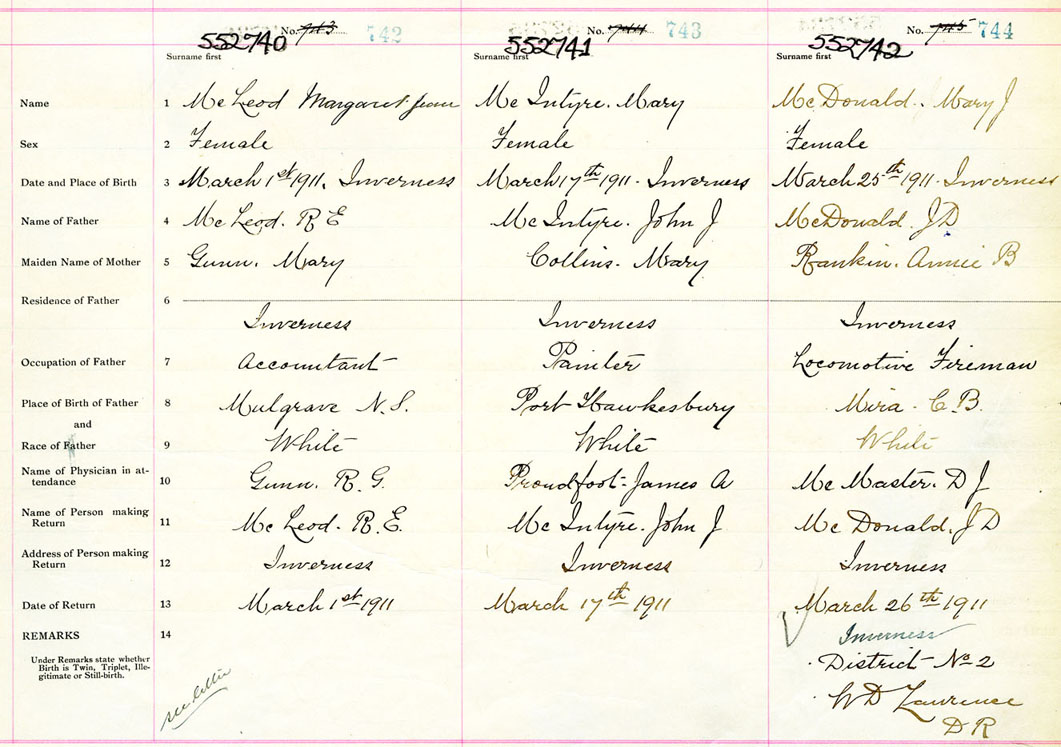 No. 743 742 No. 744 743 No. 745 744
552740 552741 552742
Surname first Surname first Surname first
Name 1 McLeod Margaret Jean Mc Intyre. Mary McDonald. Mary J
Sex 2 Female Female Female
Date and Place of Birth 3 March 1st 1911, Inverness March 17th 1911. Inverness March 25th 1911. Inverness
Name of Father 4 McLeod. R E Mc Intyre. John J McDonald. J D
Maiden Name of Mother 5 Gunn. Mary Collins. Mary Rankin. Annie B
Residence of Father 6
Inverness Inverness Inverness
Occupation of Father 7 Accountant Painter Locomotive Fireman
Place of Birth of Father 8 Mulgrave N.S. Port Hawkesbury Mira. C.B.
and
Race of Father 9 White White White
Name of Physician in at-
tendance 10 Gunn. R.G. Proudfoot. James A Mc Master. D J
Name of Person making
Return 11 Mc Leod. R.E. Mc Intyre. John J Mc Donald. J D
Address of Person making
Return 12 Inverness Inverness Inverness
Date of Return 13 March 1st 1911 March 17th 1911 March 26th 1911
REMARKS 14 Inverness
Under Remarks state whether
Birth is Twin, Triplet, Ille-
gitimate or Still-birth.
District No 2
W D Lawrence
D R